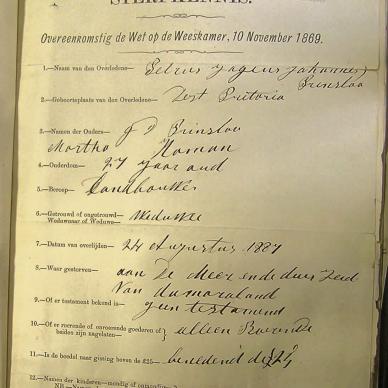 STERFKENNIS.
Overeenkomstig de Wet op de Weeskamer, 10 November 1869.
1.—Naam van den Overledene— Petrus Jogeus Johannes
Prinsloo
2.—Geboorteplaats van den Overledene— Dist Pretoria
3.—Namen der Ouders— J D Prinsloo
Martha Homan
4.—Ouderdom— 27 jaar oud
5.—Beroep— Landbouwer
6.—Getrouwd of ongetrouwd—
Weduwnaar of Weduwe— Weduwe
7.—Datum van overlijden— 24 Augustus 1887
8.—Waar gestorven— aan De Meer ende duer Zeid
van Damaraland
9.—Of er testament bekend is— geen testament
10.—Of er roerende of onroerende goederen of
beiden zijn nagelaten— alleen Roerende
11.—Is de boedel naar gissing boven de £25— benedend de £24
12.—Namen der kinderen—mondig of